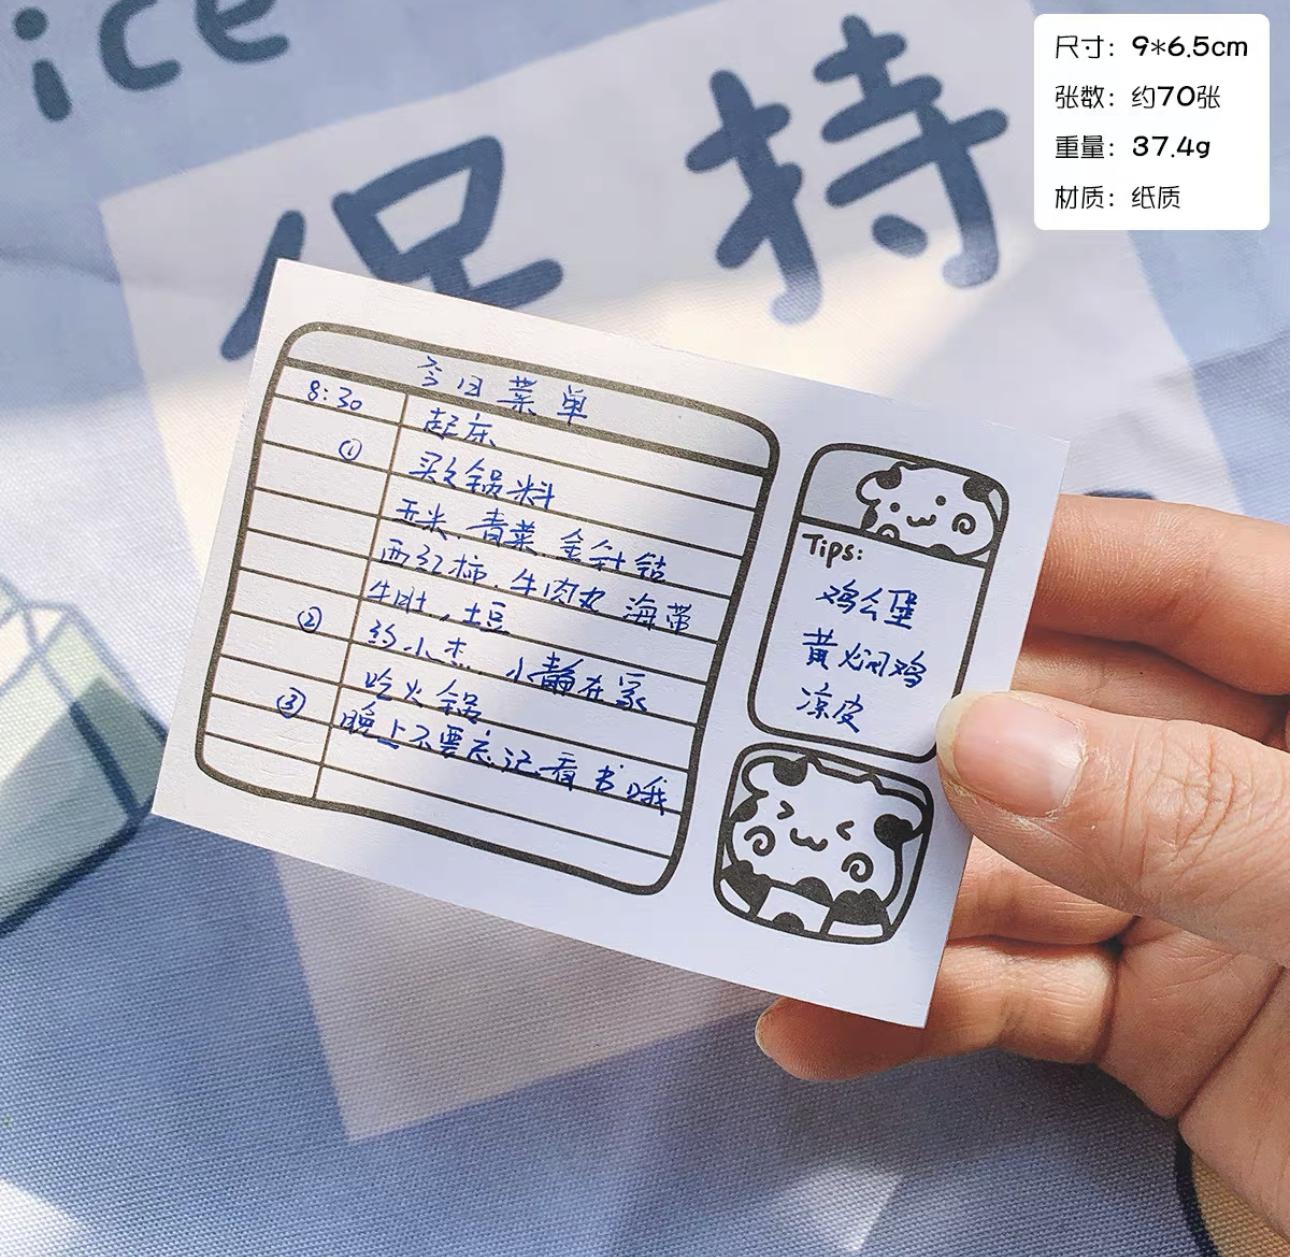 ice
保持
尺寸：9*6.5cm
张数：约70张
重量：37.4g
材质：纸质
今日菜单
8:30 起床
① 买火锅料
玉米、青菜、金针菇
西红柿、牛肉丸 海带
牛肚，土豆
② 约小杰、小静在家
吃火锅
③ 晚上不要忘记看书哦
Tips:
鸡公堡
黄焖鸡
凉皮